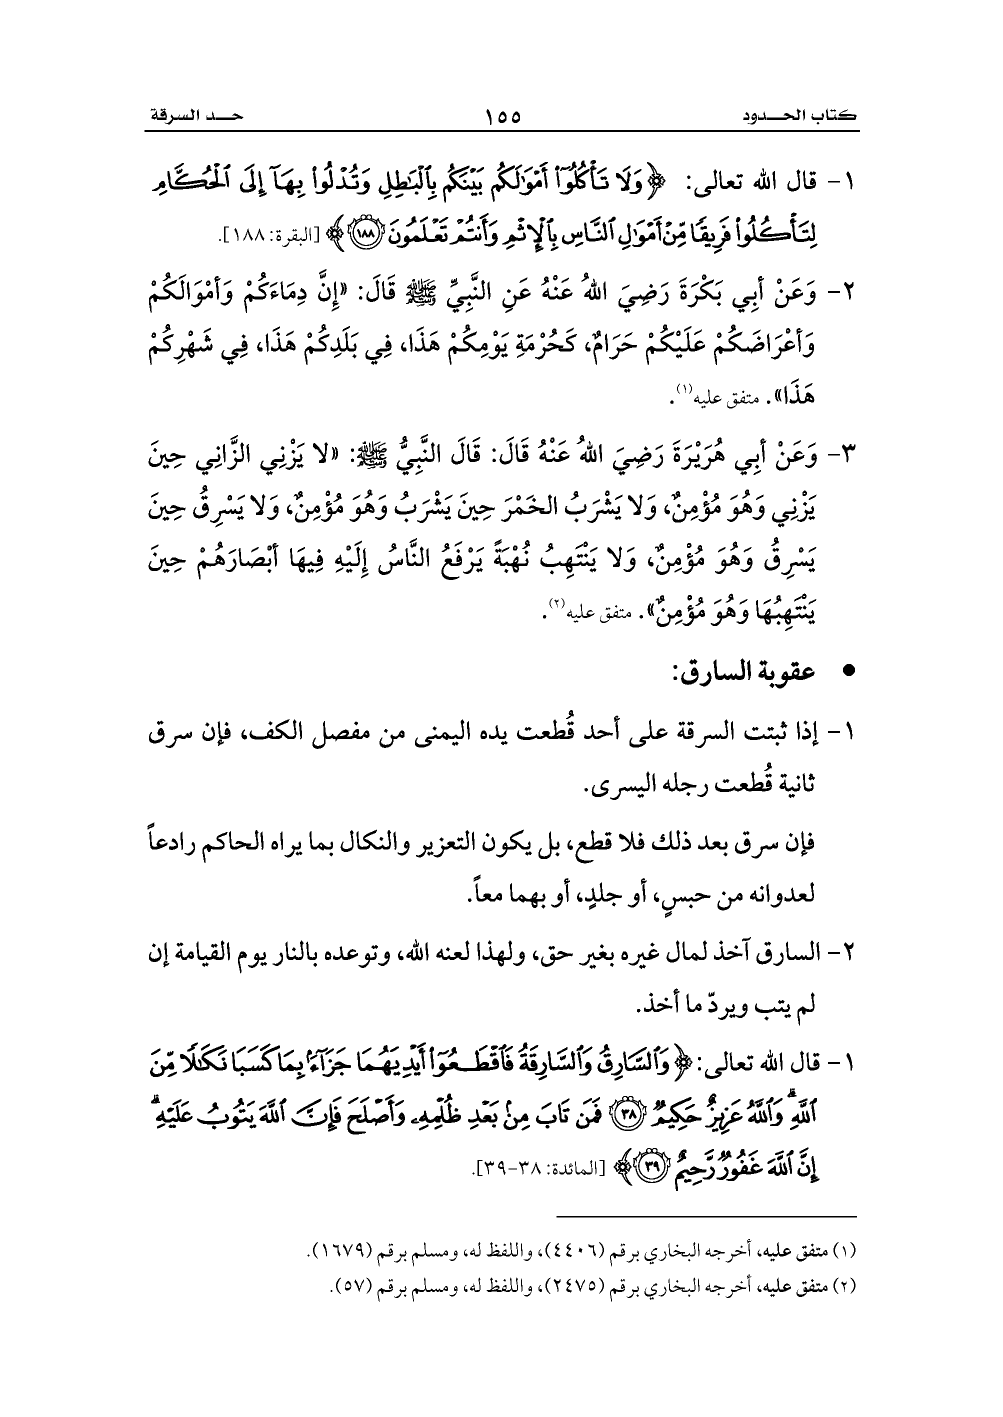 كتاب الحـــدود ١٥٥ حـــد السرقة
١- قال الله تعالى: ﴿وَلَا تَأْكُلُوٓا۟ أَمْوَٰلَكُم بَيْنَكُم بِٱلْبَٰطِلِ وَتُدْلُوا۟ بِهَآ إِلَى ٱلْحُكَّامِ
لِتَأْكُلُوا۟ فَرِيقًا مِّنْ أَمْوَٰلِ ٱلنَّاسِ بِٱلْإِثْمِ وَأَنتُمْ تَعْلَمُونَ ١٨٨﴾ [البقرة: ١٨٨].
٢- وَعَنْ أبِي بَكْرَةَ رَضِيَ اللهُ عَنْهُ عَنِ النَّبِيِّ ﷺ قَالَ: «إِنَّ دِمَاءَكُمْ وَأمْوَالَكُمْ
وَأعْرَاضَكُمْ عَلَيْكُمْ حَرَامٌ، كَحُرْمَةِ يَوْمِكُمْ هَذَا، فِي بَلَدِكُمْ هَذَا، فِي شَهْرِكُمْ
هَذَا». متفق عليه(١).
٣- وَعَنْ أبِي هُرَيْرَةَ رَضِيَ اللهُ عَنْهُ قَالَ: قَالَ النَّبِيُّ ﷺ: «لا يَزْنِي الزَّانِي حِينَ
يَزْنِي وَهُوَ مُؤْمِنٌ، وَلا يَشْرَبُ الخَمْرَ حِينَ يَشْرَبُ وَهُوَ مُؤْمِنٌ، وَلا يَسْرِقُ حِينَ
يَسْرِقُ وَهُوَ مُؤْمِنٌ، وَلا يَنْتَهِبُ نُهْبَةً يَرْفَعُ النَّاسُ إِلَيْهِ فِيهَا أبْصَارَهُمْ حِينَ
يَنْتَهِبُهَا وَهُوَ مُؤْمِنٌ». متفق عليه(٢).
● عقوبة السارق:
١- إذا ثبتت السرقة على أحد قُطعت يده اليمنى من مفصل الكف، فإن سرق
ثانية قُطعت رجله اليسرى.
فإن سرق بعد ذلك فلا قطع، بل يكون التعزير والنكال بما يراه الحاكم رادعاً
لعدوانه من حبسٍ، أو جلدٍ، أو بهما معاً.
٢- السارق آخذ لمال غيره بغير حق، ولهذا لعنه الله، وتوعده بالنار يوم القيامة إن
لم يتب ويردّ ما أخذ.
١- قال الله تعالى: ﴿وَٱلسَّارِقُ وَٱلسَّارِقَةُ فَٱقْطَعُوٓا۟ أَيْدِيَهُمَا جَزَآءًۢ بِمَا كَسَبَا نَكَٰلًا مِّنَ
ٱللَّهِ ۗ وَٱللَّهُ عَزِيزٌ حَكِيمٌ ٣٨ فَمَن تَابَ مِنۢ بَعْدِ ظُلْمِهِۦ وَأَصْلَحَ فَإِنَّ ٱللَّهَ يَتُوبُ عَلَيْهِ ۗ
إِنَّ ٱللَّهَ غَفُورٌ رَّحِيمٌ ٣٩﴾ [المائدة: ٣٨-٣٩].
(١) متفق عليه، أخرجه البخاري برقم (٤٤٠٦)، واللفظ له، ومسلم برقم (١٦٧٩).
(٢) متفق عليه، أخرجه البخاري برقم (٢٤٧٥)، واللفظ له، ومسلم برقم (٥٧).